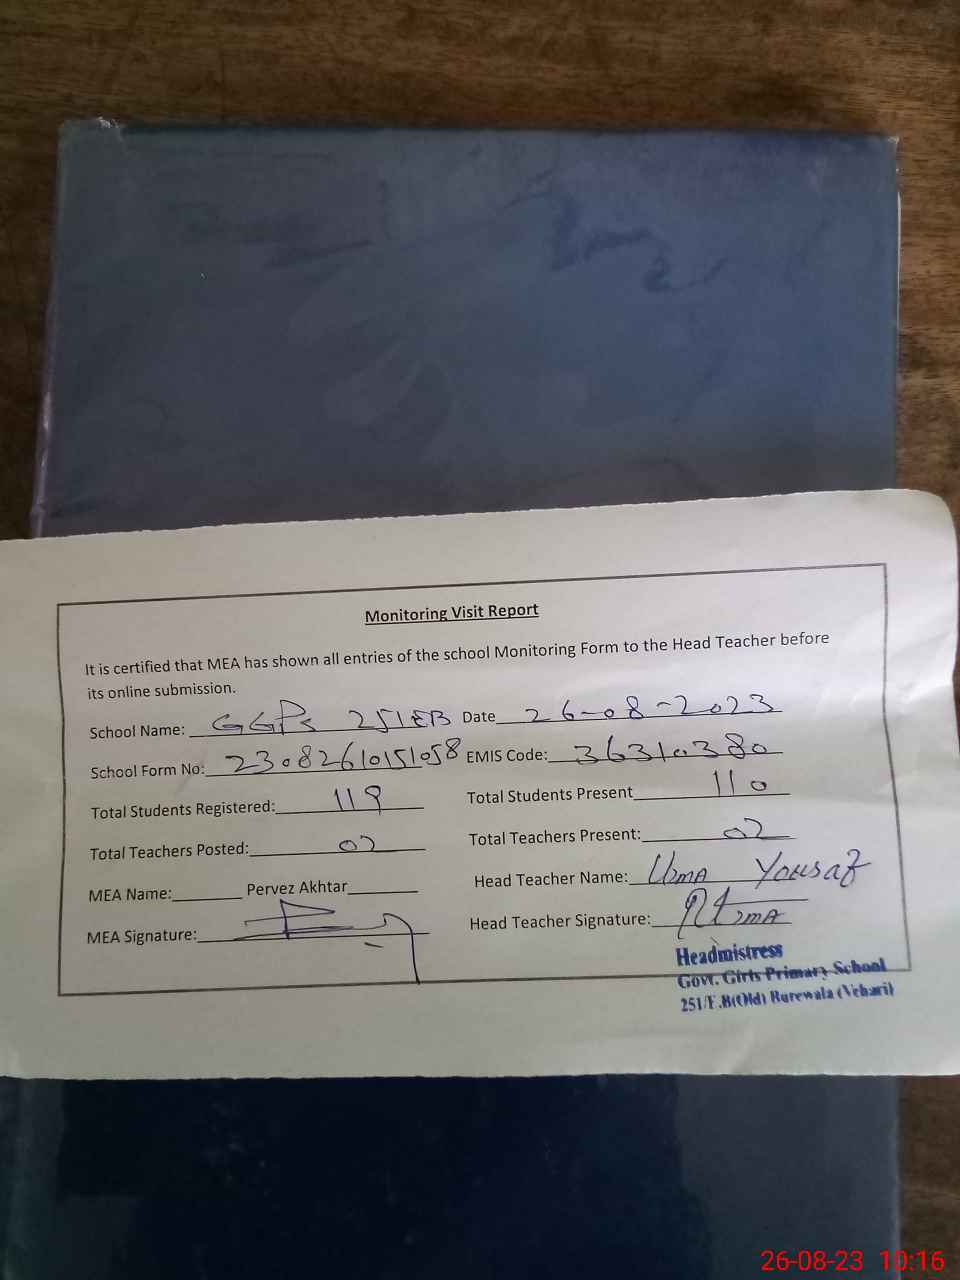 Monitoring Visit Report
It is certified that MEA has shown all entries of the school Monitoring Form to the Head Teacher before
its online submission.
School Name: GGPS 251EB Date 26-08-2023
School Form No: 23082610151058 EMIS Code: 36310380
Total Students Registered: 119 Total Students Present 110
Total Teachers Posted: 02 Total Teachers Present: 02
MEA Name: Pervez Akhtar Head Teacher Name: Uzma Yousaf
MEA Signature: Head Teacher Signature:
Headmistress
Govt. Girls Primary School
251/E.B(Old) Burewala (Vehari)
26-08-23 10:16